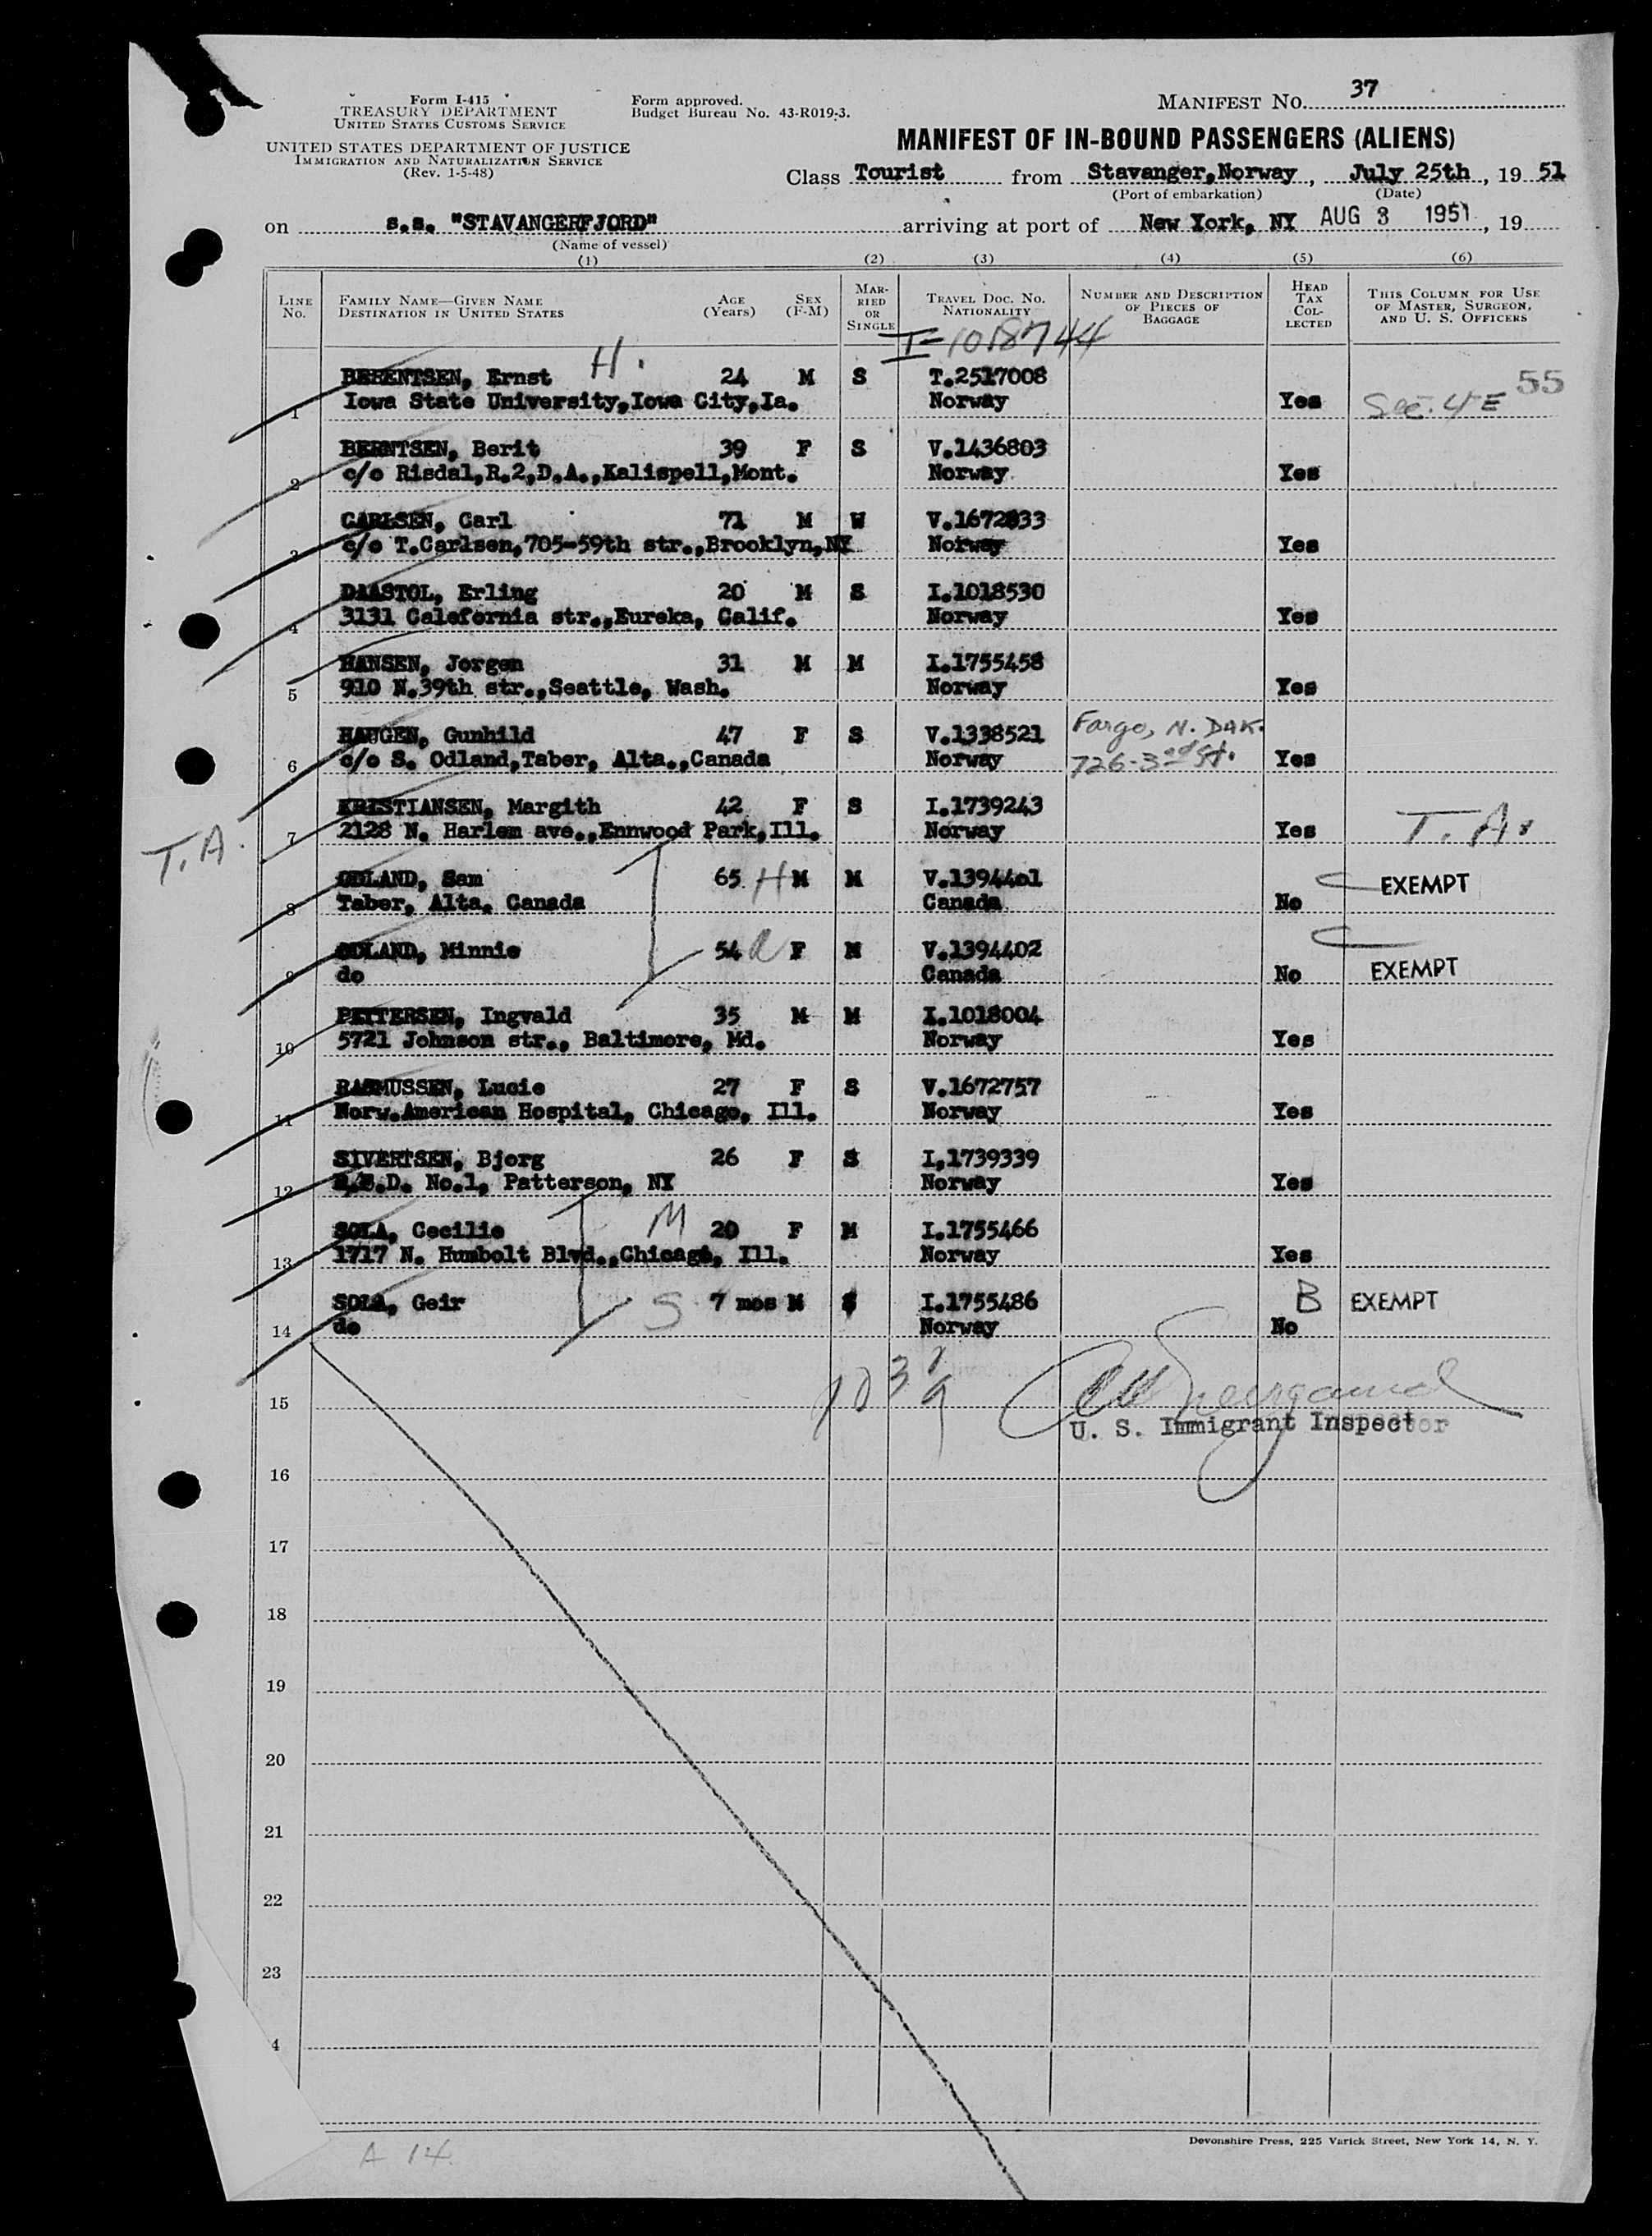 Form I-415
TREASURY DEPARTMENT
UNITED STATES CUSTOMS SERVICE
UNITED STATES DEPARTMENT OF JUSTICE
IMMIGRATION AND NATURALIZATION SERVICE
(Rev. 1-5-48)
Form approved.
Budget Bureau No. 43-R019-3.
MANIFEST NO. 37
MANIFEST OF IN-BOUND PASSENGERS (ALIENS)
Class Tourist from Stavanger,Norway, July 25th, 19 51
(Port of embarkation) (Date)
on s.s. "STAVANGERFJORD" arriving at port of New York, NY AUG 3 1951, 19
(Name of vessel)
(1) (2) (3) (4) (5) (6)
LINE NO. FAMILY NAME—GIVEN NAME DESTINATION IN UNITED STATES AGE (Years) SEX (F-M) MARRIED OR SINGLE TRAVEL DOC. NO. NATIONALITY NUMBER AND DESCRIPTION OF PIECES OF BAGGAGE HEAD TAX COLLECTED THIS COLUMN FOR USE OF MASTER, SURGEON, AND U. S. OFFICERS
I-1018744
BERENTSEN, Ernst H. 24 M S T.2517008 55
1 Iowa State University,Iowa City,Ia. Norway Yes Sec. 4E
BERNTSEN, Berit 39 F S V.1436803
2 c/o Risdal,R.2,D.A.,Kalispell,Mont. Norway Yes
CARLSEN, Carl 71 M W V.1672833
3 c/o T.Carlsen,705-59th str.,Brooklyn,NY Norway Yes
DAASTOL, Erling 20 M S I.1018530
4 3131 Calefornia str.,Eureka, Calif. Norway Yes
HANSEN, Jorgen 31 M M I.1755458
5 910 N.39th str.,Seattle, Wash. Norway Yes
HAUGEN, Gunhild 47 F S V.1338521 Fargo, N. DAK.
6 c/o S. Odland,Taber, Alta.,Canada Norway 726-3rd St. Yes
KRISTIANSEN, Margith 42 F S I.1739243
7 2128 N. Harlem ave.,Ennwood Park,Ill. Norway Yes T.A.
T.A.
ODLAND, Sam 65 H M M V.1394401 EXEMPT
8 Taber, Alta. Canada Canada No
ODLAND, Minnie 54 F M V.1394402
9 do Canada No EXEMPT
PETTERSEN, Ingvald 35 M M I.1018004
10 5721 Johnson str., Baltimore, Md. Norway Yes
RASMUSSEN, Lucie 27 F S V.1672757
11 Norw.American Hospital, Chicago, Ill. Norway Yes
SIVERTSEN, Bjorg 26 F S I,1739339
12 R.F.D. No.1, Patterson, NY Norway Yes
SOLA, Cecilie M 20 F M I.1755466
13 1717 N. Humbolt Blvd.,Chicago, Ill. Norway Yes
SOLA, Geir S 7 mos M S I.1755486 B EXEMPT
14 do Norway No
15
U. S. Immigrant Inspector
16
17
18
19
20
21
22
23
4
Devonshire Press, 225 Varick Street, New York 14, N. Y.
A 14